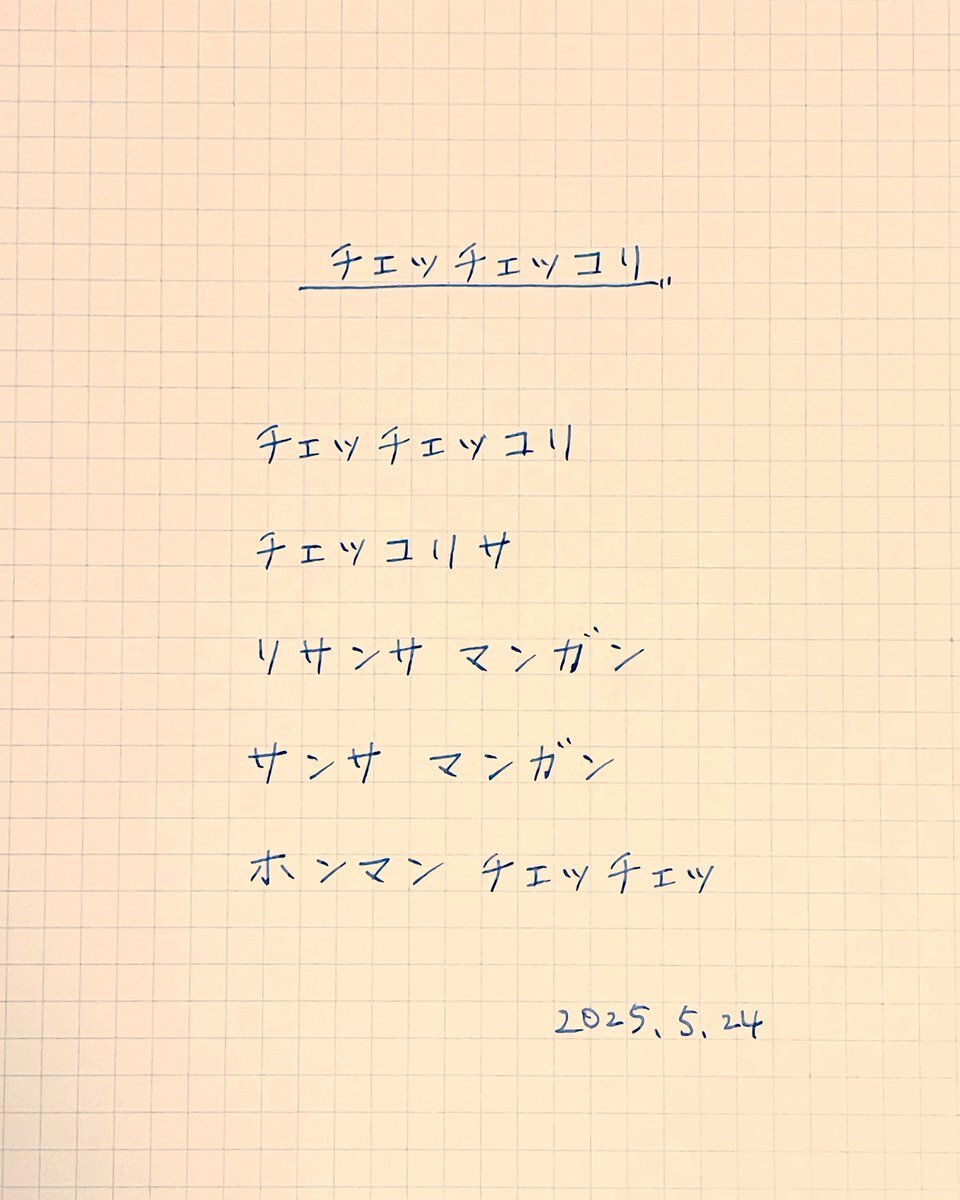 チェッチェッコリ
チェッチェッコリ
チェッコリサ
リサンサ マンガン
サンサ マンガン
ホンマン チェッチェッ
2025.5.24